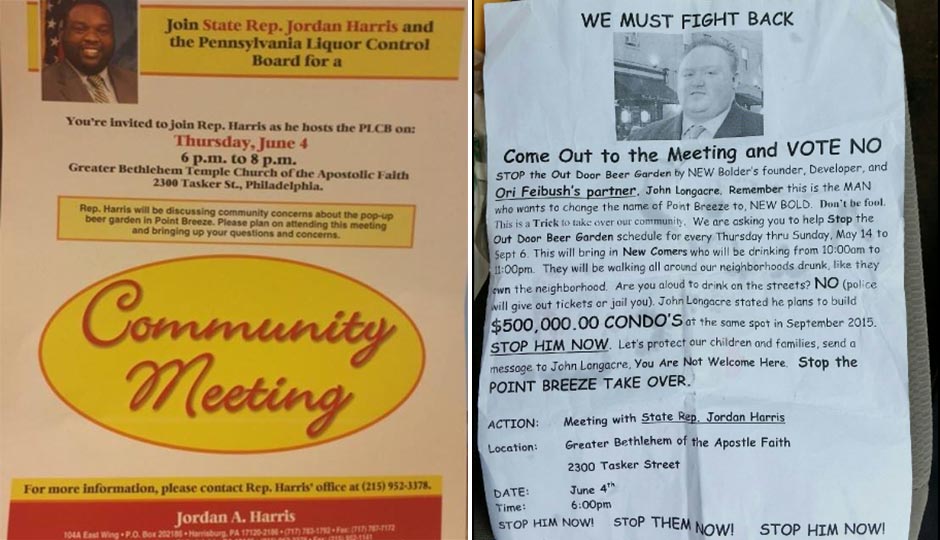 Join State Rep. Jordan Harris and
the Pennsylvania Liquor Control
Board for a
You're invited to join Rep. Harris as he hosts the PLCB on:
Thursday, June 4
6 p.m. to 8 p.m.
Greater Bethlehem Temple Church of the Apostolic Faith
2300 Tasker St., Philadelphia.
Rep. Harris will be discussing community concerns about the pop-up
beer garden in Point Breeze. Please plan on attending this meeting
and bringing up your questions and concerns.
Community
Meeting
For more information, please contact Rep. Harris' office at (215) 952-3378.
Jordan A. Harris
104A East Wing • P.O. Box 202186 • Harrisburg, PA 17120-2186 • (717) 783-1792 • Fax: (717) 787-7172
WE MUST FIGHT BACK
Come Out to the Meeting and VOTE NO
STOP the Out Door Beer Garden by NEW Bolder's founder, Developer, and
Ori Feibush's partner, John Longacre. Remember this is the MAN
who wants to change the name of Point Breeze to, NEW BOLD. Don't be fool.
This is a Trick to take over our community. We are asking you to help Stop the
Out Door Beer Garden schedule for every Thursday thru Sunday, May 14 to
Sept 6. This will bring in New Comers who will be drinking from 10:00am to
11:00pm. They will be walking all around our neighborhoods drunk, like they
own the neighborhood. Are you aloud to drink on the streets? NO (police
will give out tickets or jail you). John Longacre stated he plans to build
$500,000.00 CONDO'S at the same spot in September 2015.
STOP HIM NOW. Let's protect our children and families, send a
message to John Longacre, You Are Not Welcome Here. Stop the
POINT BREEZE TAKE OVER.
ACTION: Meeting with State Rep. Jordan Harris
Location: Greater Bethlehem of the Apostle Faith
2300 Tasker Street
DATE: June 4th
Time: 6:00pm
STOP HIM NOW! STOP THEM NOW! STOP HIM NOW!